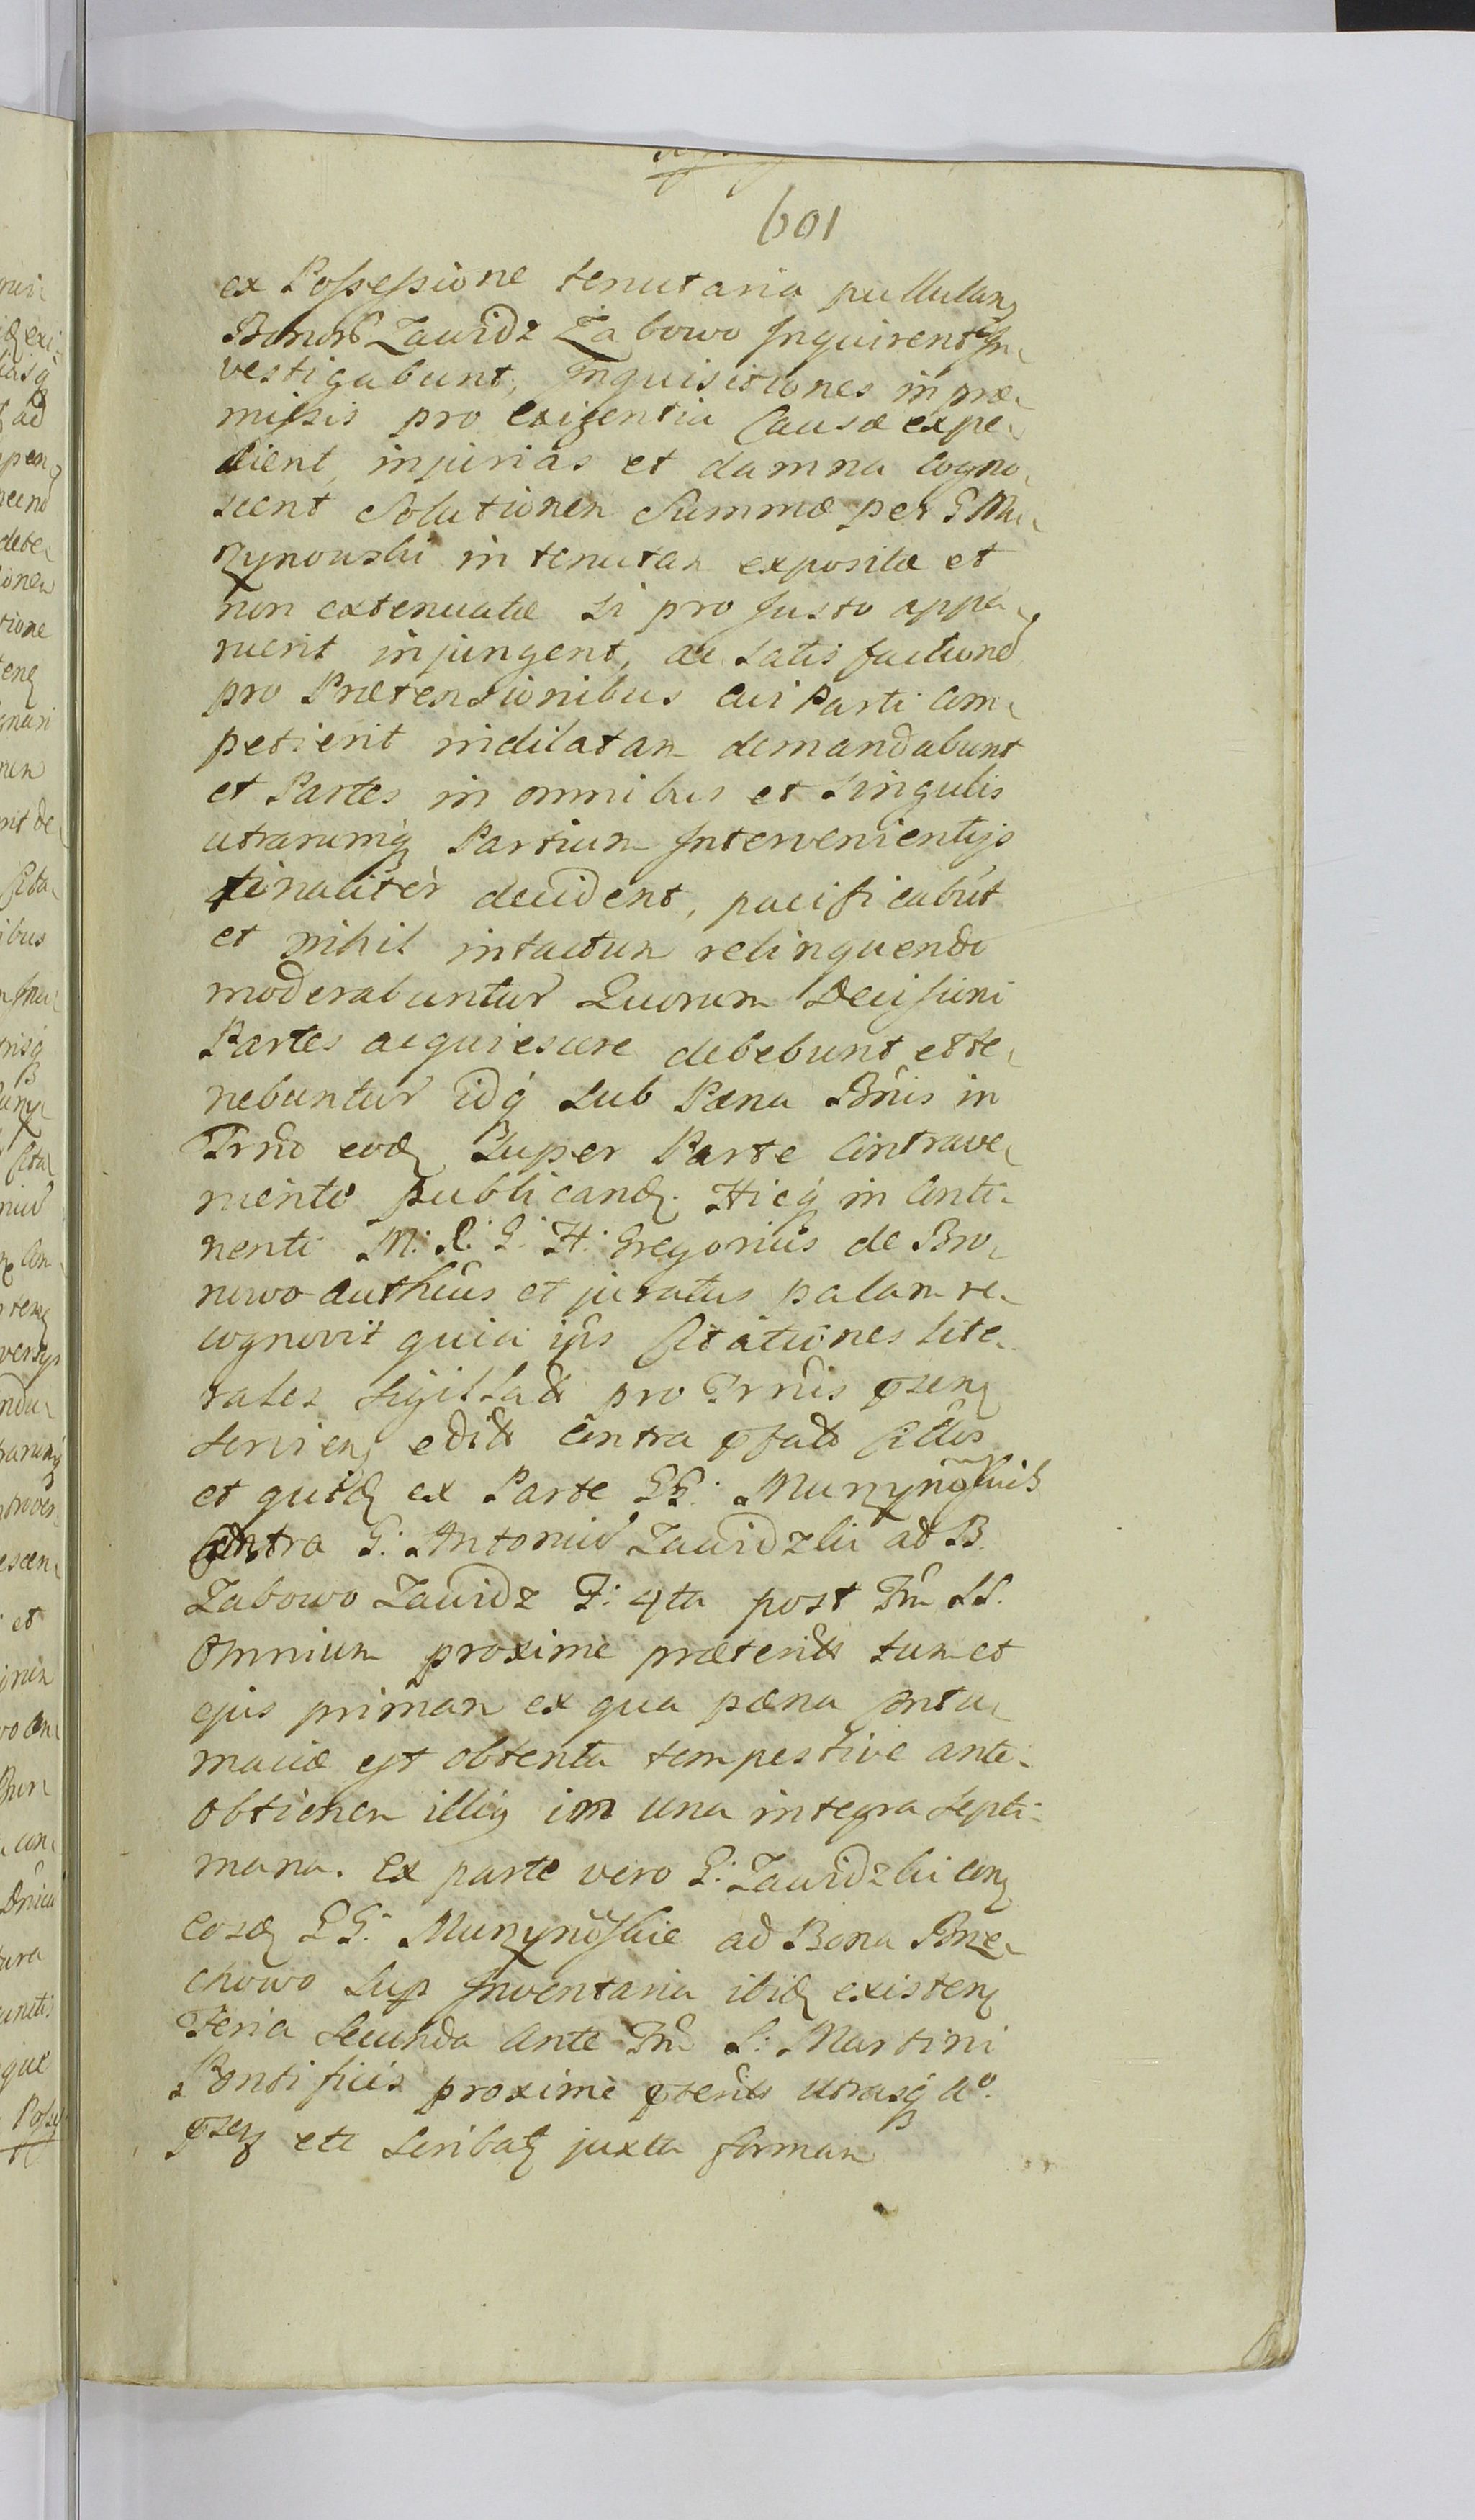 601
ex Possessione tenutaria pullulan
Bonor Zawidz Zabowo Inquirent In
vestigabunt, Inquisitiones in præ
missis pro exigentia Causæ expe
dient, injurias et damna cogno
scent Solutionem Summæ per G Mu
rzynowski in tenutam expositæ et
non extenuatæ si pro justo appa
ruerit injungent, ac satisfactione
pro Prætensionibus cui Parti com
petierit indilatam demandabunt
et Partes in omnibus et singulis
utrarumq Partium Intervenientijs
finaliter decident, pacificabut
et nihil intactum relinquendo
moderabuntur Quorum Decisioni
Partes acquiescere debebunt et te
nebuntur idq sub Pæna Bnis in
Trno eod super Parte Contrave
niente publicand. Hicq in Conti
nenti M: R: G: H: Gregorius de Bro
nowo authcus et juratus palam re
cognovit quia ips Citationes lite
rales sigillat pro Trnis psen
servien edit Contra pfat Cittos
et quid ex Parte GG: Murzynoskich
Contra G: Antoniu Zawidzki ad B.
Zabowo Zawidz F: 4ta post Fm SS.
Omnium proxime præterit tum et
ejus primam ex qua pæna Contu
maciæ est obtenta tempestive ante
obtionem illiq im una integra septi
mana. Ex parte vero G: Zawidzki con
eosd GG: Murzynoskie ad Bona Brze
chowo sup Inventaria ibid existen
Feria Secunda Ante Fm S: Martini
Pontificis proxime pterit utrasq Ao.
psen ett scribat juxta formam